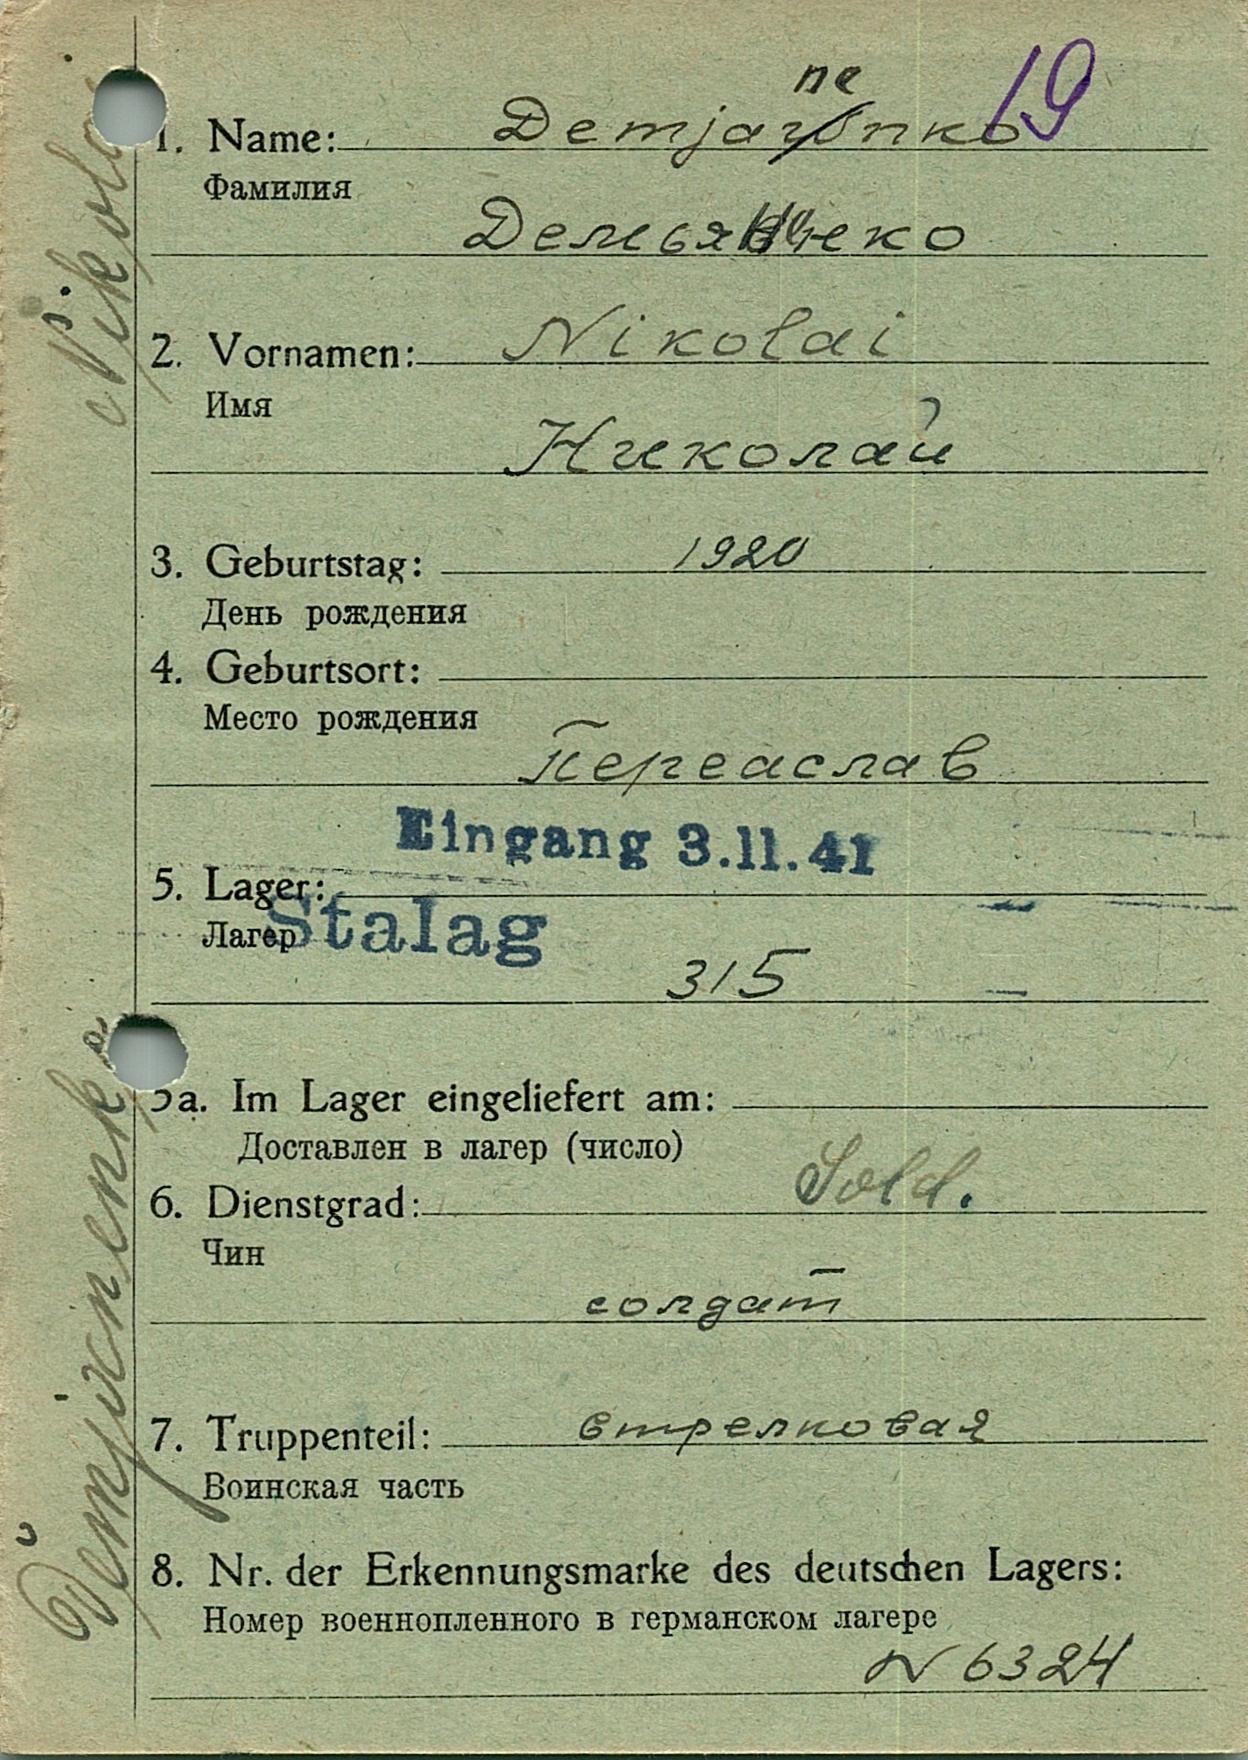 19
1. Name: Demjanenko
Фамилия
Демьяненко
2. Vornamen: Nikolai
Имя
Николай
3. Geburtstag: 1920
День рождения
4. Geburtsort:
Место рождения
Переаслав
Eingang 3.11.41
5. Lager:
Stalag
Лагер
315
5a. Im Lager eingeliefert am:
Доставлен в лагер (число)
6. Dienstgrad: Sold.
Чин
солдат
7. Truppenteil: стрелковая
Воинская часть
8. Nr. der Erkennungsmarke des deutschen Lagers:
Номер военнопленного в германском лагере
N 6324
Demjanenko Nikolai